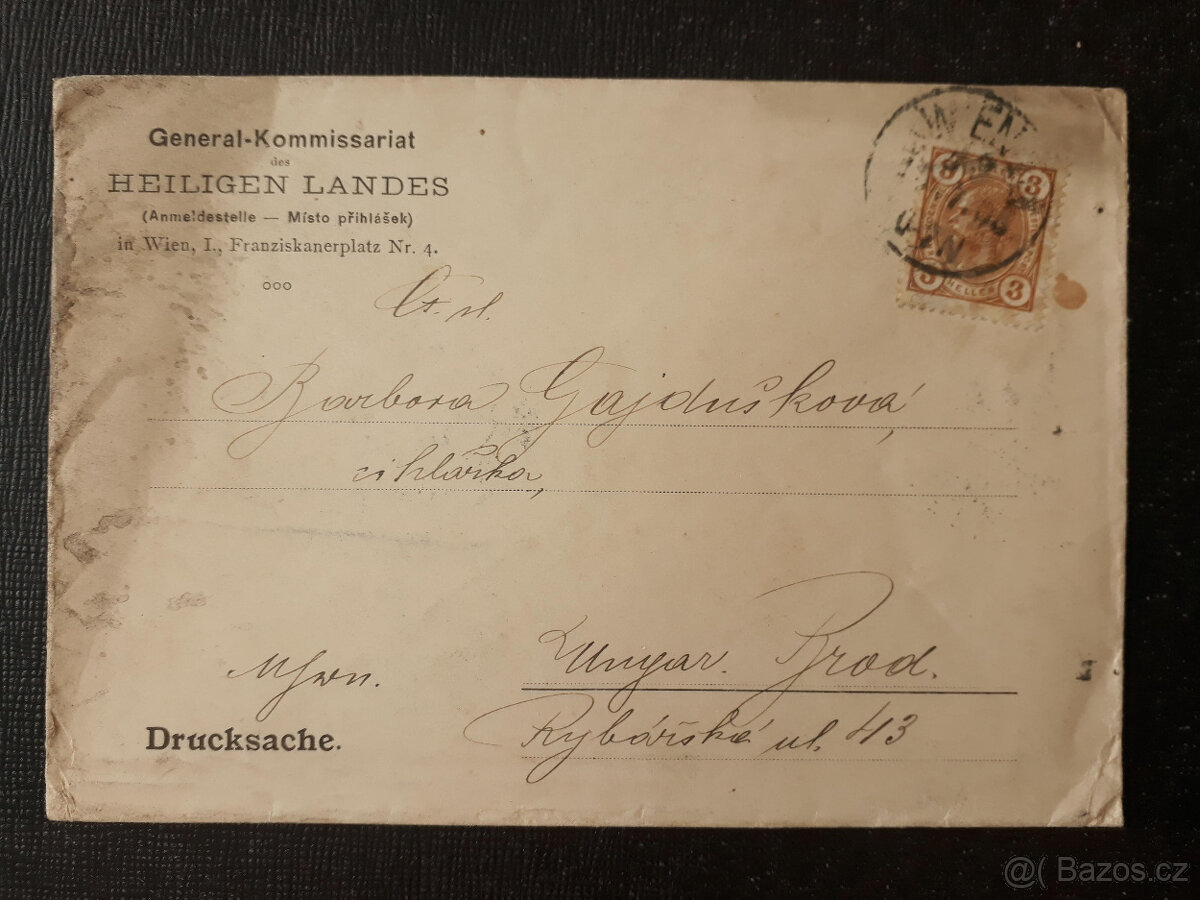 General-Kommissariat
des
HEILIGEN LANDES
(Anmeldestelle — Místo přihlášek)
in Wien, I., Franziskanerplatz Nr. 4.
ooo
WIEN
3 3
3 HELLER 3
Ct. sl.
Barbora Gajdušková,
cihlářka,
Ungar. Brod.
Mhrn.
Drucksache.
Rybářská ul. 43
@( Bazos.cz